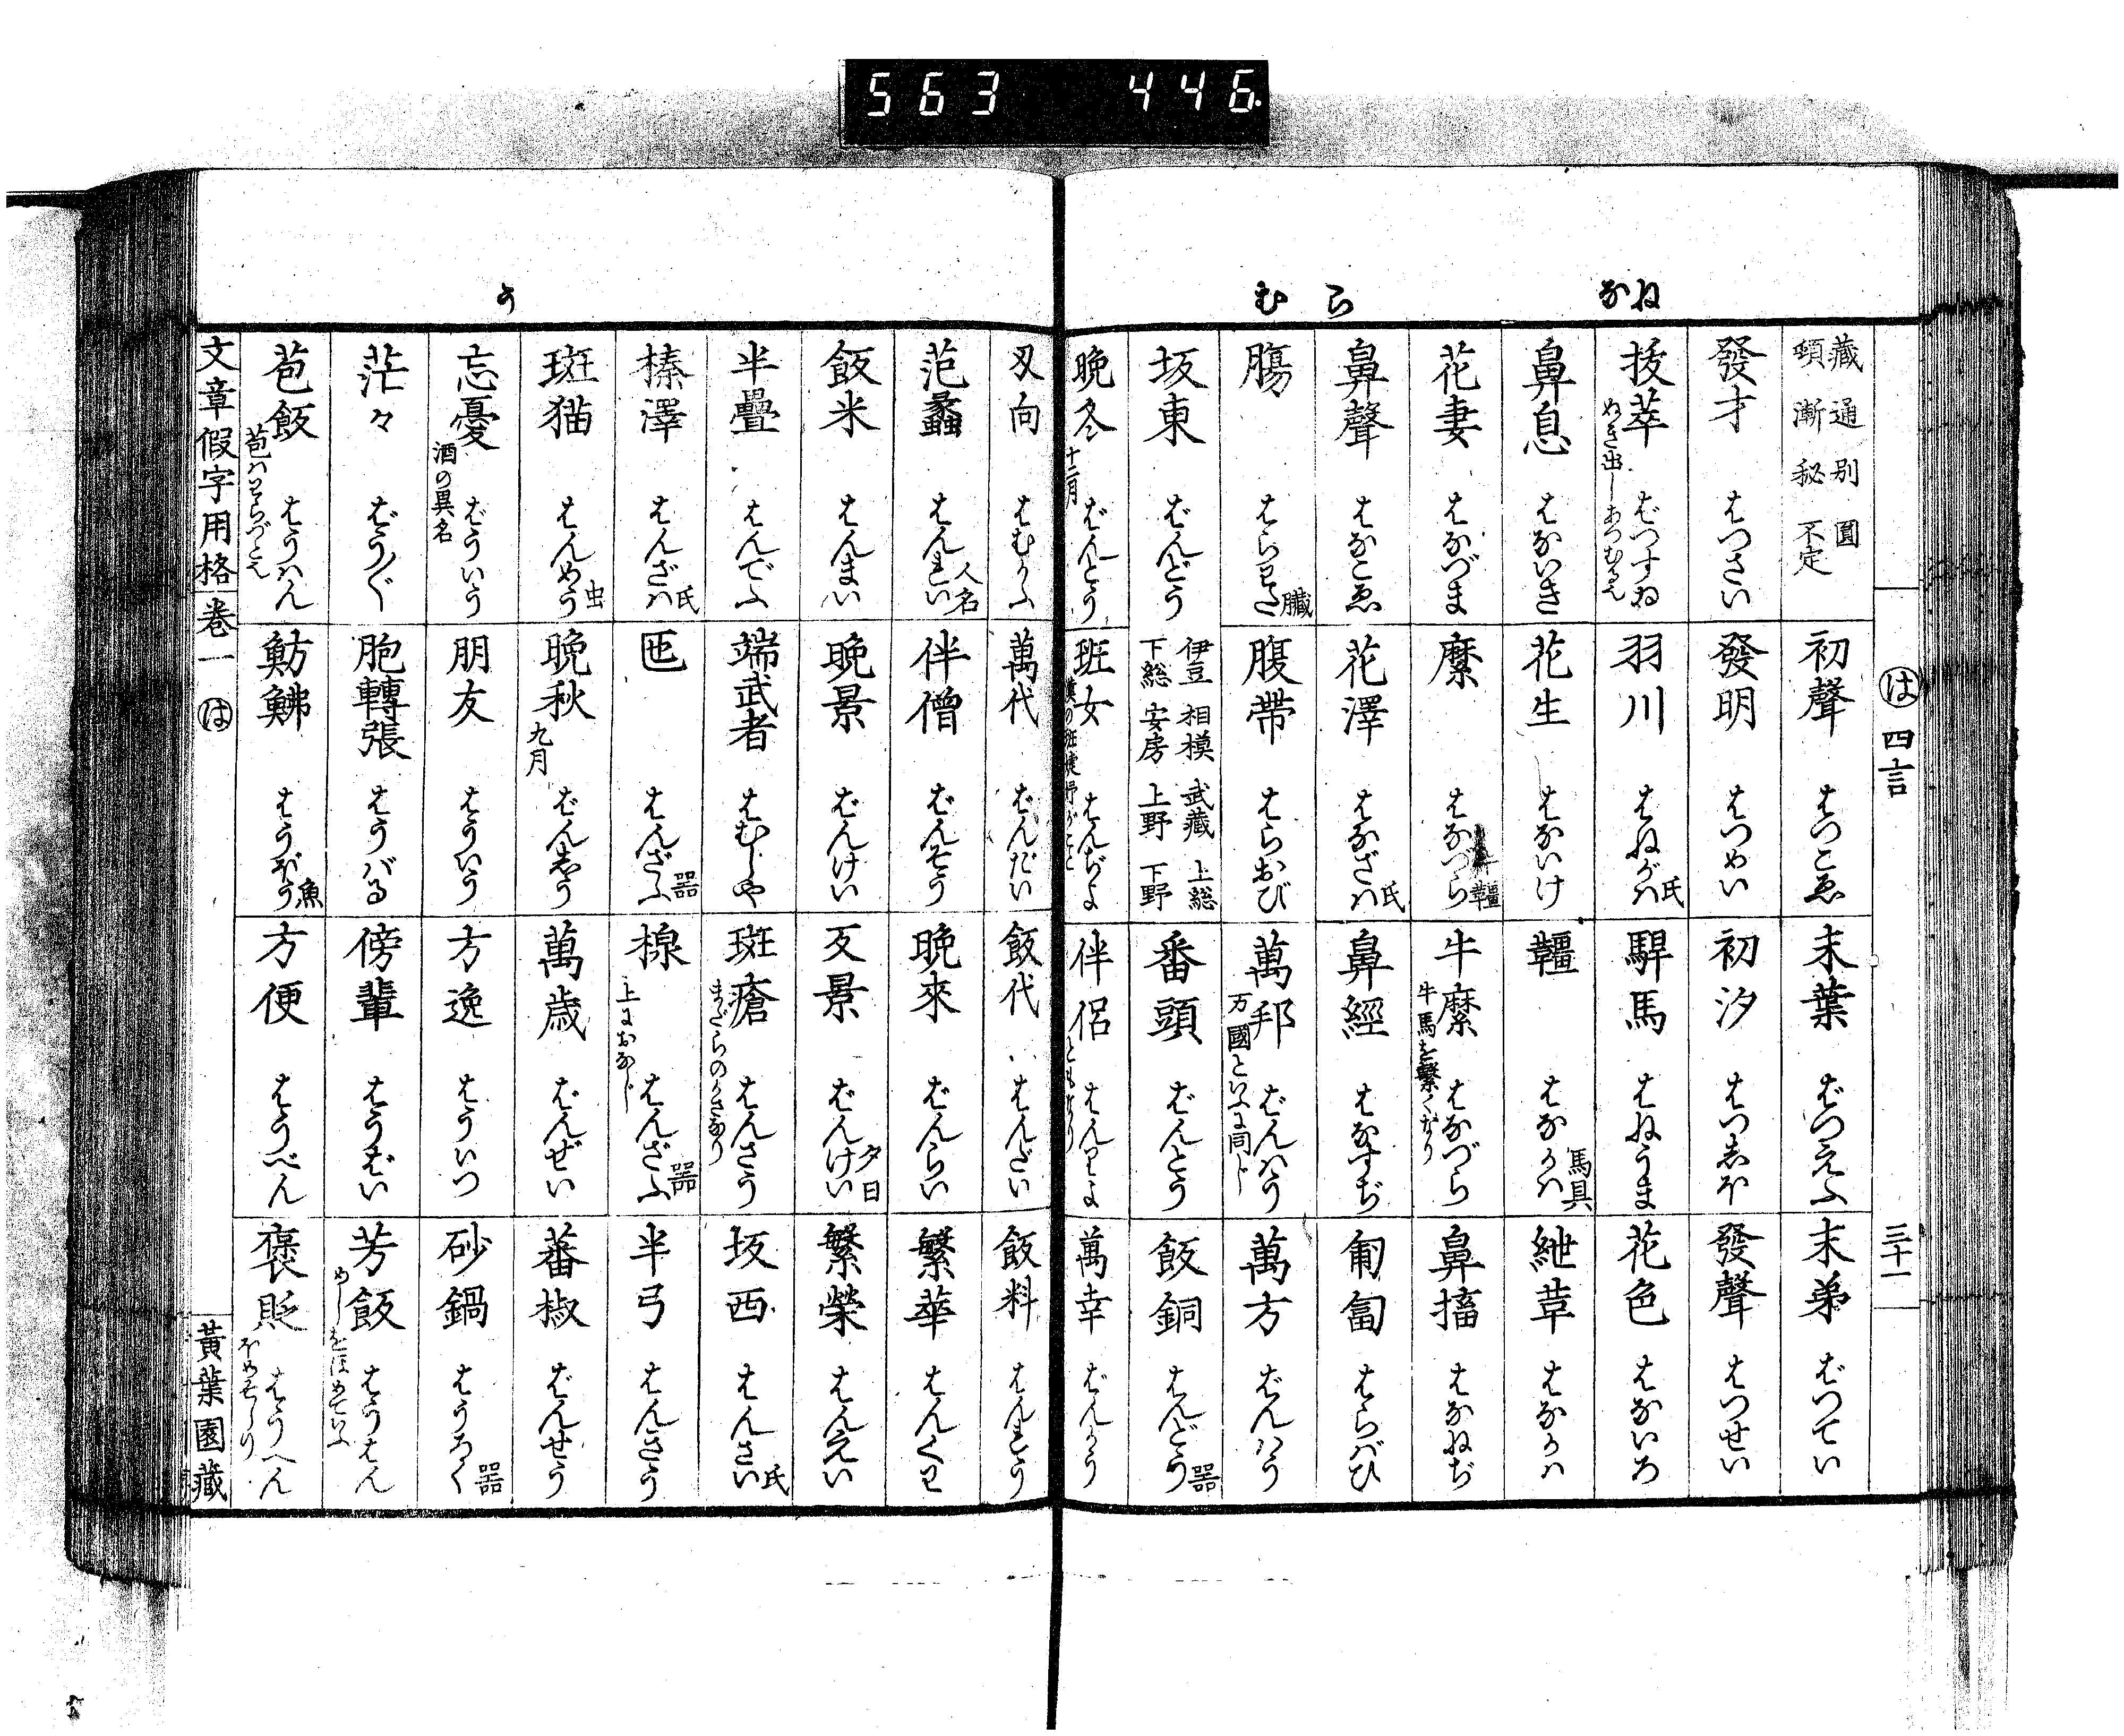 563 446
なね
らむ
は 四言 三十一
藏通別圓
頓漸秘不定
初聲 はつこゑ
末葉 ばつえふ
末弟 ばつてい
發才 はつさい
發明 はつめい
初汐 はつしほ
發聲 はつせい
抜萃 ばつすゐ
羽川 はねがハ 氏
騂馬 はねうま
花色 はないろ
鼻息 はないき
花生 はないけ
韁 はなかハ 馬具
紲䩗 はなかハ
花妻 はなづま
縻 はなづら 韁
牛縻 はなづら 牛馬を繋ぐなり
鼻㨫 はなねぢ
鼻聲 はなこゑ
花澤 はなざハ 氏
鼻經 はなすぢ
匍匐 はらばひ
膓 はらわた 臓
腹帶 はらおび
萬邦 ばんハう 万國といふに同じ
萬方 ばんハう
坂東 ばんどう
伊豆 相模 武藏 上総
下総 安房 上野 下野
番頭 ばんとう
飯銅 はんどう 器
晩冬 十二月 ばんとう
班女 はんぢよ
伴侶 はんりよ
萬幸 ばんかう
う
刄向 はむかふ
萬代 ばんだい
飯代 はんだい
飯料 はんれう
范蠡 はんれい 人名
伴僧 ばんそう
晩來 ばんらい
繁華 はんくわ
飯米 はんまい
晩景 ばんけい
反景 ばんけい 夕日
繁榮 はんえい
半疊 はんでふ
端武者 はむしや
斑瘡 はんさう
坂西 はんさい 氏
榛澤 はんざハ 氏
匜 はんざふ 器
楾 はんざふ 器 上におなじ
半弓 はんきう
斑猫 はんめう 虫
晩秋 九月 ばんしう
萬歳 ばんぜい
蕃椒 ばんせう
忘憂 酒の異名 ばういう
朋友 はういう
方逸 はういつ
砂鍋 はうろく 器
茫々 ばう〱
胞轉張 はうバる
傍輩 はうばい
芳飯 はうはん めしをほめていふ
苞飯 はうハん 苞ハわらづと也
魴鮄 はうぼう 魚
方便 はうべん
褒貶 はうへん ほめそしり
文章假字用格 卷一 は
黃葉園藏